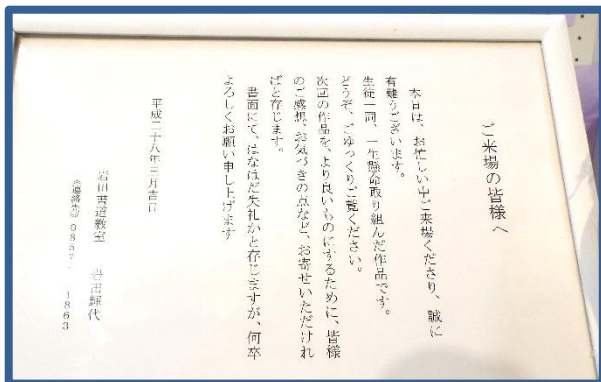 ご来場の皆様へ
本日は、お忙しい中ご来場くださり、誠に
有難うございます。
生徒一同、一生懸命取り組んだ作品です。
どうぞ、ごゆっくりご覧ください。
次回の作品を、より良いものにするために、皆様
のご感想、お気づきの点など、お寄せいただけれ
ばと存じます。
書面にて、はなはだ失礼かと存じますが、何卒
よろしくお願い申し上げます
平成二十八年三月吉日
岩田書道教室 岩田輝代
(連絡先) 0857- 1863